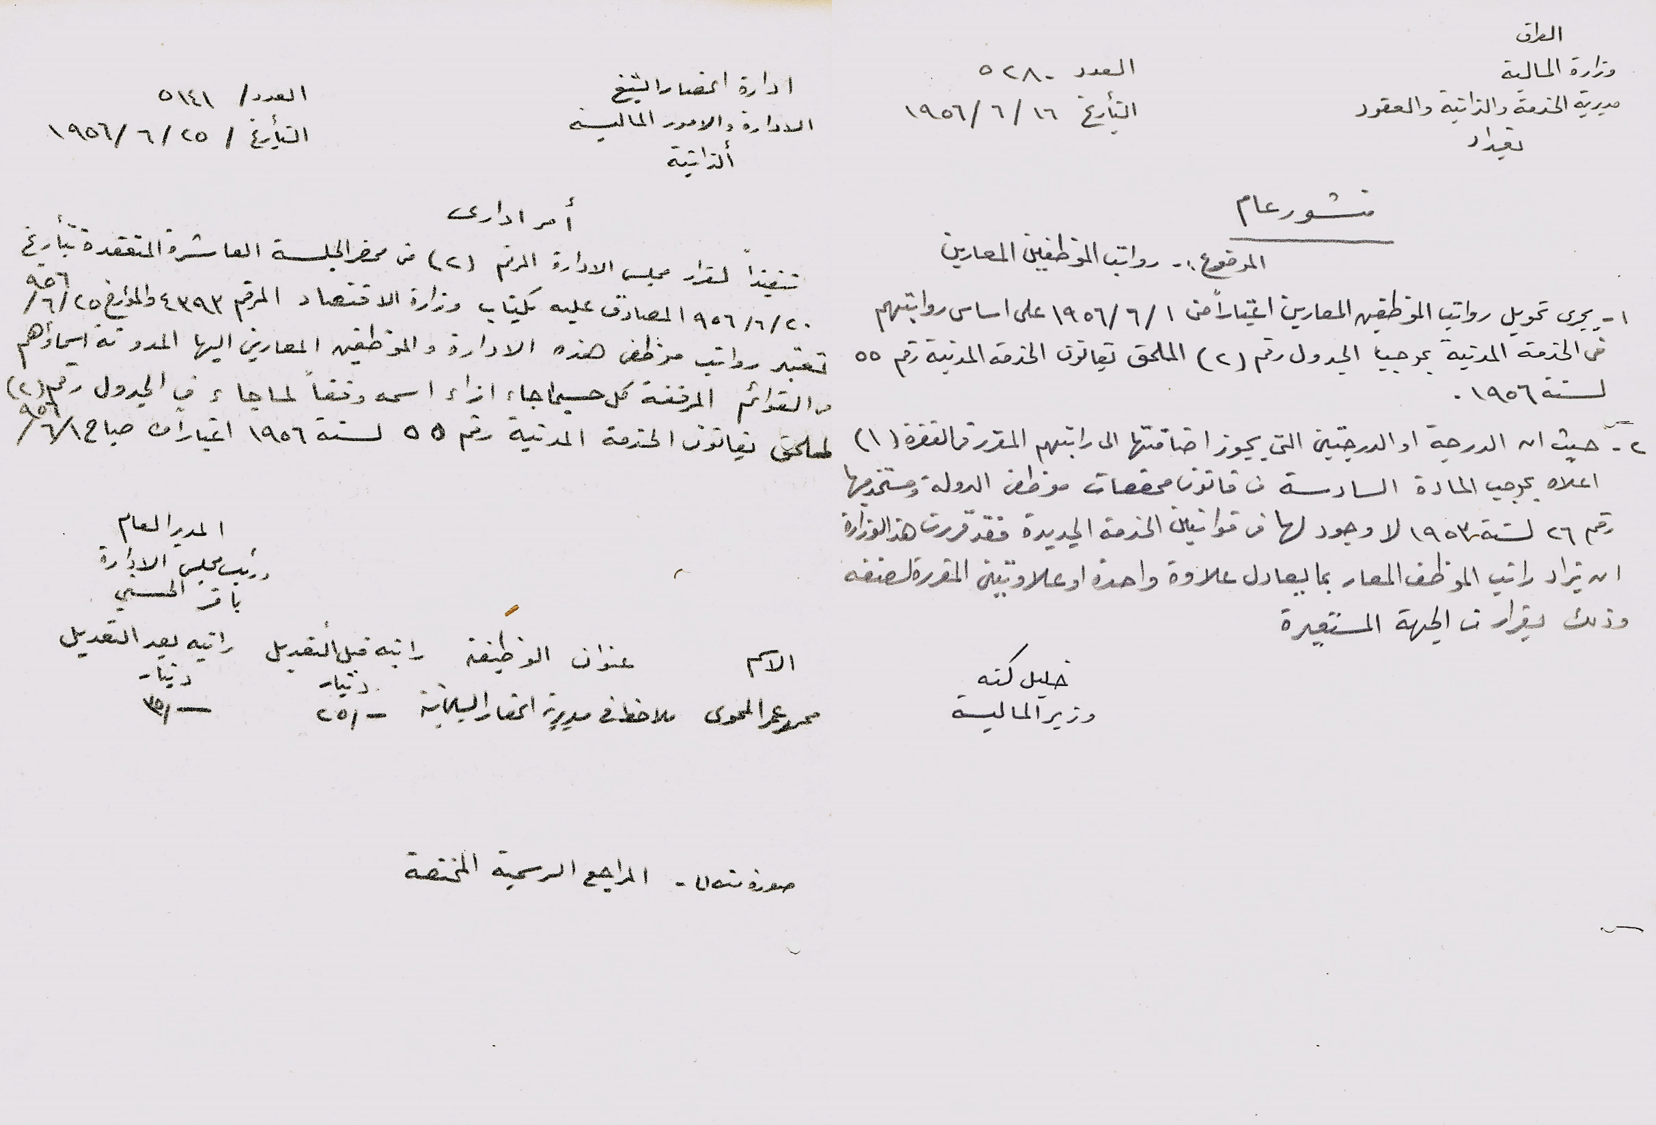 العراق
وزارة المالية
مديرية الخدمة والذاتية والعقود
بغداد
العدد ٥٢٨٠
التأريخ ١٦ / ٦ / ١٩٥٦
منشور عام
الموضوع :ـ رواتب الموظفين المعارين
١ـ يجرى تحويل رواتب الموظفين المعارين اعتباراً من ١ / ٦ / ١٩٥٦ على اساس رواتبهم
في الخدمة المدنية بموجب الجدول رقم (٢) الملحق بقانون الخدمة المدنية رقم ٥٥
لسنة ١٩٥٦ .
٢ـ حيث ان الدرجة او الدرجتين التي يجوز اضافتها الى راتبهم المقرر في الفقرة (١)
اعلاه بموجب المادة السادسة من قانون مخصصات موظفي الدولة ومستخدميها
رقم ٢٦ لسنة ١٩٥٣ لا وجود لها في قوانين الخدمة الجديدة فقد قررت هذه الوزارة
ان يزاد راتب الموظف المعار بما يعادل علاوة واحدة او علاوتين المقررة لصنفه
وذلك بقرار من الجهة المستعيرة
خليل كنه
وزير المالية
ادارة انحصار التبغ
الادارة والامور المالية
ألذاتية
العدد / ٥١٤١
التأريخ / ٢٥ / ٦ / ١٩٥٦
أمر ادارى
تنفيذاً لقرار مجلس الادارة المرقم (٢) من محضر الجلسة العاشرة المنعقدة بتأريخ
٢٠ / ٦ / ٩٥٦ المصادق عليه بكتاب وزارة الاقتصاد المرقم ٤٣٩٣ والمؤرخ ٢٥ / ٦ / ٩٥٦
تعتبر رواتب موظفي هذه الادارة والموظفين المعارين اليها المدونة اسماؤهم
في القوائم المرفقة كل حسبما جاء ازاء اسمه وفقاً لما جاء في الجدول رقم (٢)
لملحق بقانون الخدمة المدنية رقم ٥٥ لسنة ١٩٥٦ اعتباراً من صباح ١ / ٦ / ٩٥٦
المدير العام
ورئيس مجلس الادارة
باقر الحسني
الاسم عنوان الوظيفة راتبه قبل ألتعديل راتبه بعد التعديل
دينار دينار
محمود عمر ملاحظ في مديرية انحصار السليمانية ٢٥/ـ ٣٥/ـ
صورة منه الى ـ المراجع الرسمية المختصة